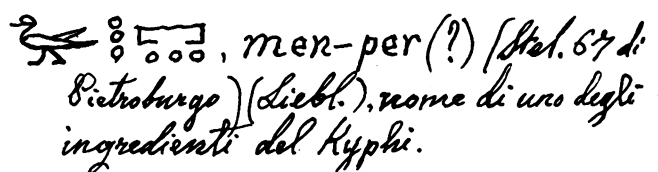 , men-per (?) (Stel. 67 di
Pietroburgo) (Liebl.), nome di uno degli
ingredienti del Kyphi.